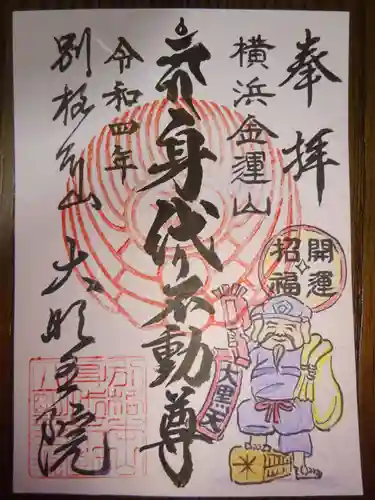 奉拝
横浜金運山
開運
招福
身代不動尊
大黒天
令和四年
別格本山 大明王院